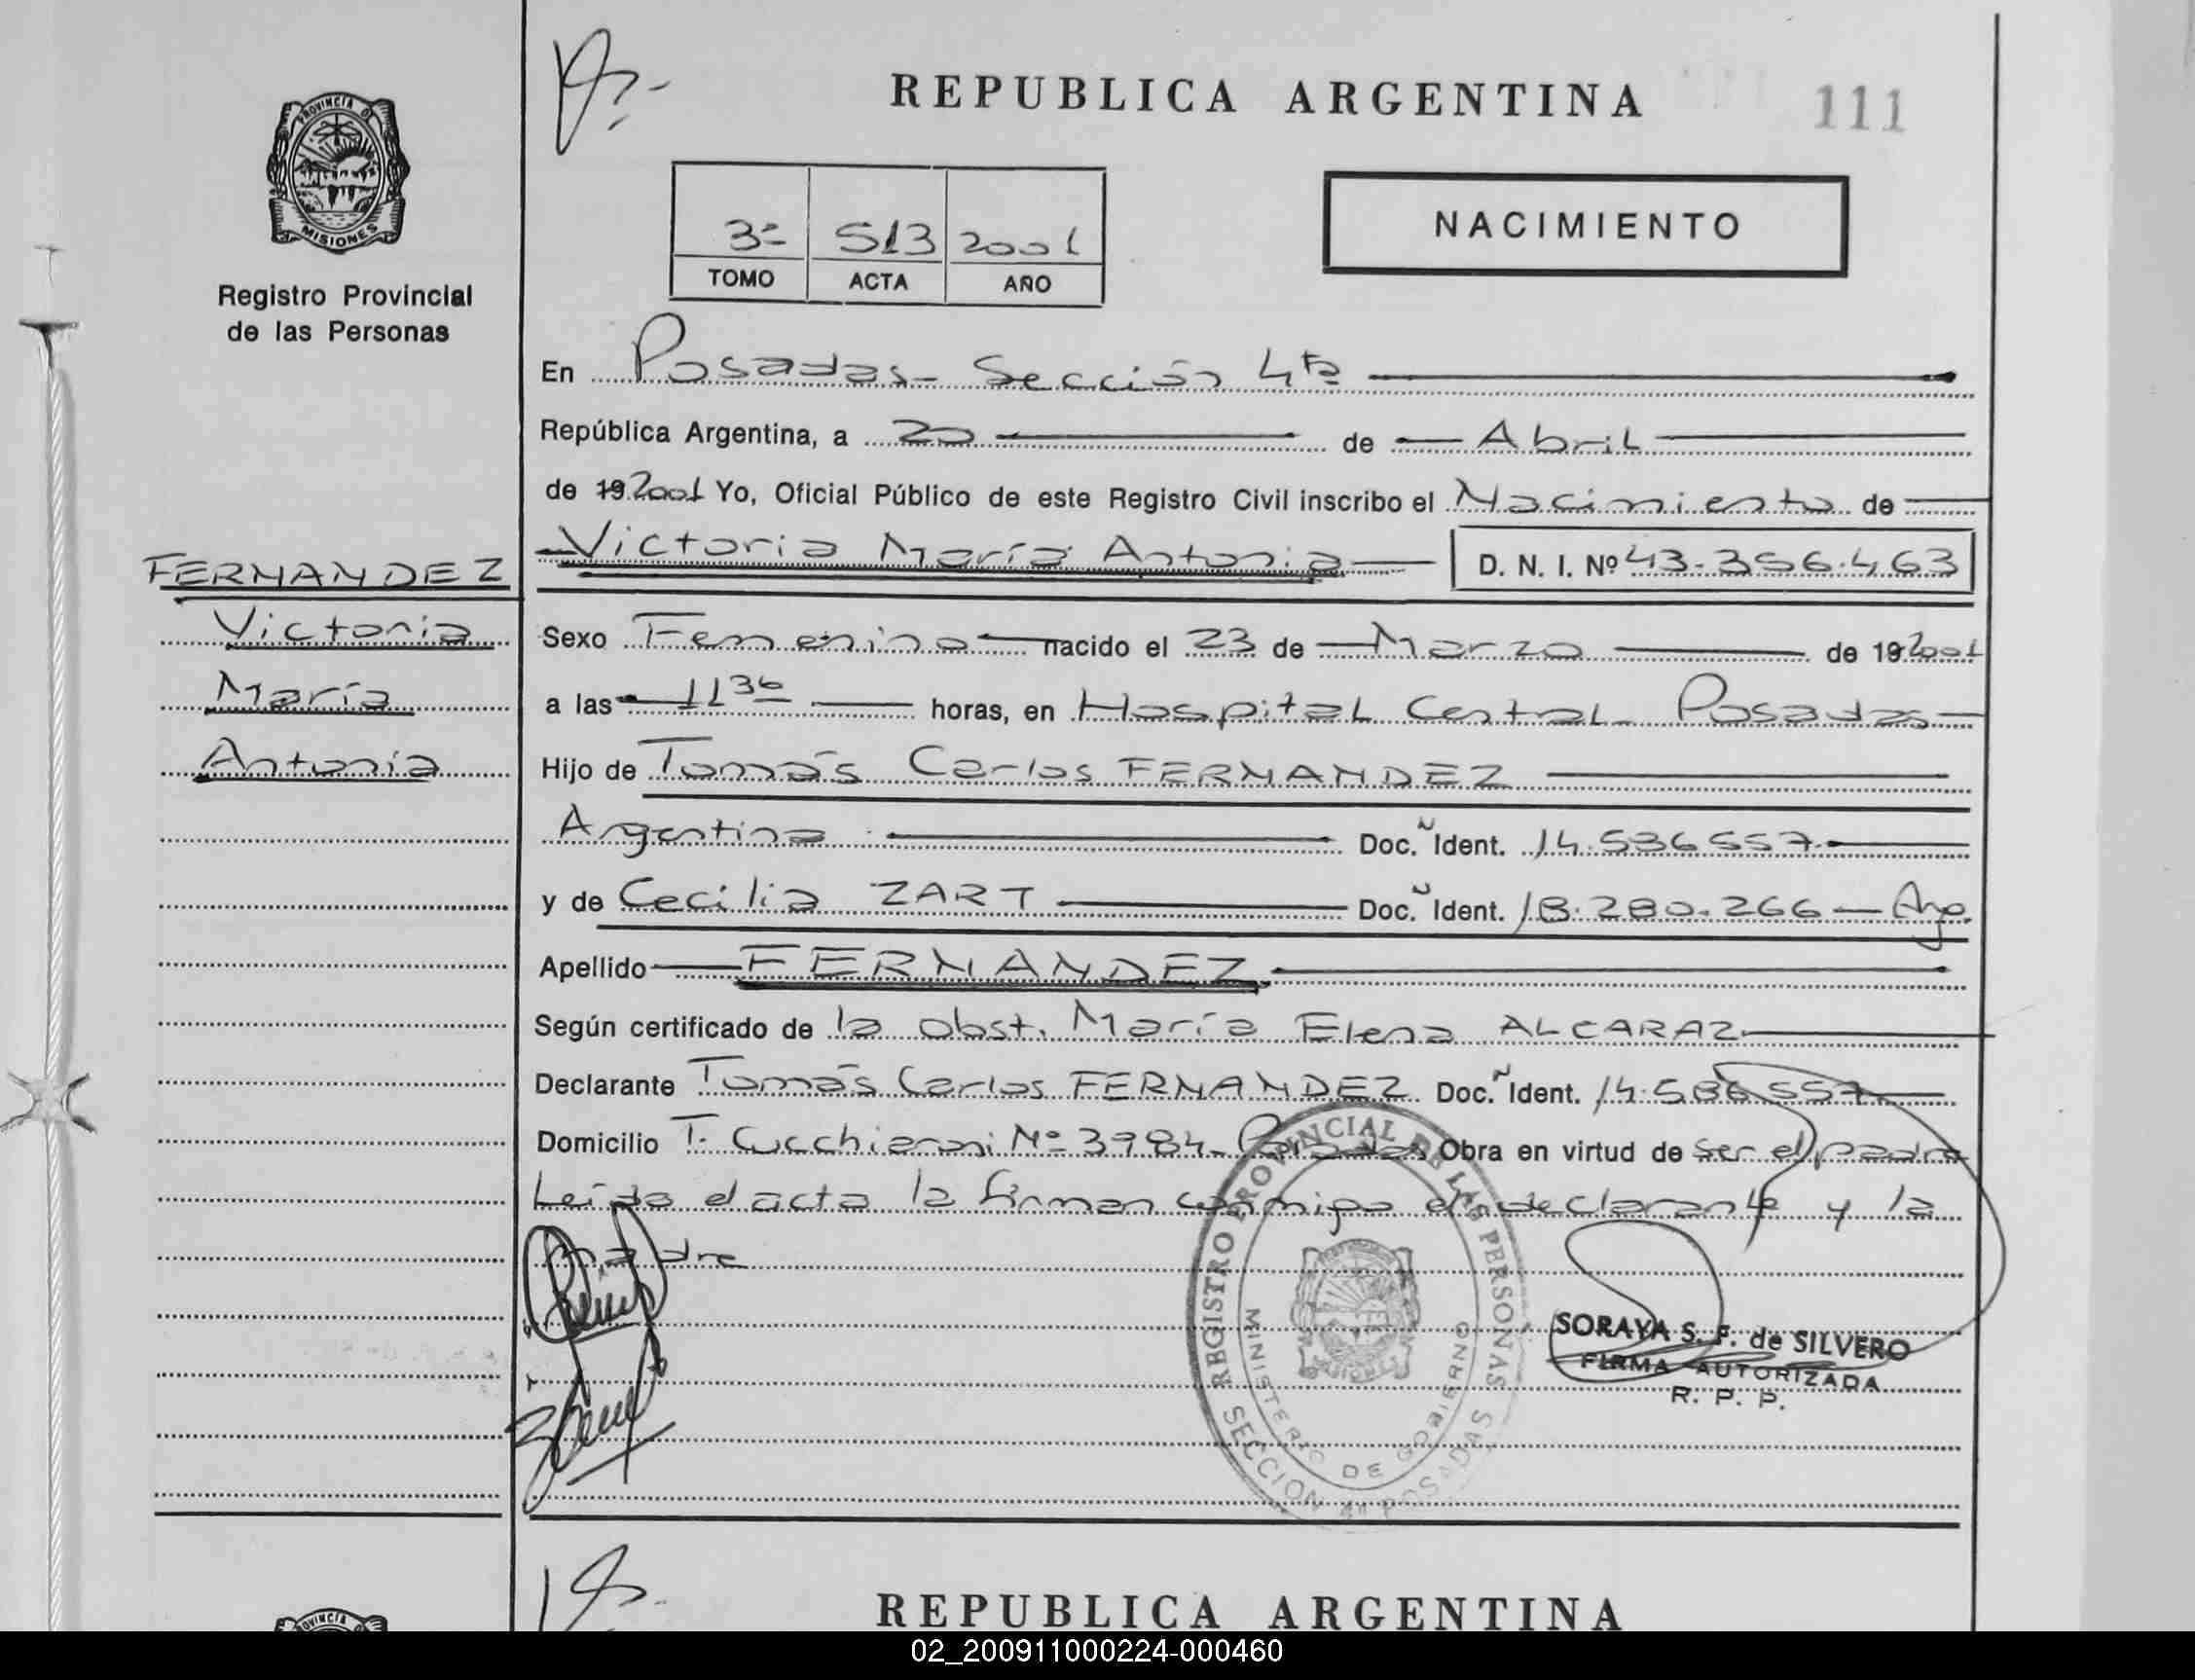 REPUBLICA ARGENTINA
111
PROVINCIA D MISIONES
Registro Provincial
de las Personas
3º 513 2001
TOMO ACTA AÑO
NACIMIENTO
En Posadas - Sección 4ta
República Argentina, a 20 de Abril
de 19 2001 Yo, Oficial Público de este Registro Civil inscribo el Nacimiento de
Victoria María Antonia D. N. I. Nº 43.356.463
FERNANDEZ
Victoria
María
Antonia
Sexo Femenino nacido el 23 de Marzo de 19 2001
a las 11 36 horas, en Hospital Central Posadas
Hijo de Tomás Carlos FERNANDEZ
Argentina Doc. Ident. 14.536557
y de Cecilia ZART Doc. Ident. 18.280.266 - Arg.
Apellido FERNANDEZ
Según certificado de la obst. María Elena ALCARAZ
Declarante Tomás Carlos FERNANDEZ Doc. Ident. 14.536557
Domicilio T. Cucchiaroni Nº 3984 - Posadas Obra en virtud de ser el padre
Leída el acta la firman conmigo el declarante y la
madre
REGISTRO PROVINCIAL DE LAS PERSONAS
MINISTERIO DE GOBIERNO
SECCION 4ª POSADAS
SORAYA S. F. de SILVERO
FIRMA AUTORIZADA
R. P. P.
PROVINCIA
REPUBLICA ARGENTINA
02_200911000224-000460